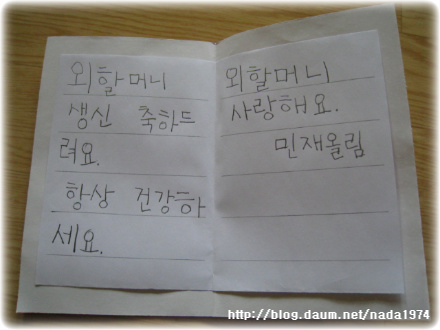 외할머니
생신 축하드
려요.
항상 건강하
세요.
외할머니
사랑해요.
민재올림
http://blog.daum.net/nada1974